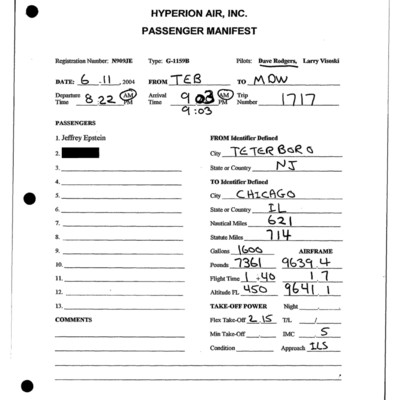 HYPERION AIR, INC.
PASSENGER MANIFEST
Registration Number: N909JE Type: G-1159B Pilots: Dave Rodgers, Larry Visoski
DATE: 6 . 11 . 2004 FROM TEB TO MDW
Departure Time 8:22 AM PM Arrival Time 9 03 AM PM Trip Number 1717
9:03
PASSENGERS
1. Jeffrey Epstein FROM Identifier Defined
2. City TETERBORO
3. State or Country NJ
4. TO Identifier Defined
5. City CHICAGO
6. State or Country IL
7. Nautical Miles 621
8. Statute Miles 714
9. Gallons 1600 AIRFRAME
10. Pounds 7361 9639 4
11. Flight Time 1 . 40 1 7
12. Altitude FL 450 9641 1
13. TAKE-OFF POWER Night /
COMMENTS Flex Take-Off 2.15 T/L /
Min Take-Off IMC .5
Condition Approach ILS